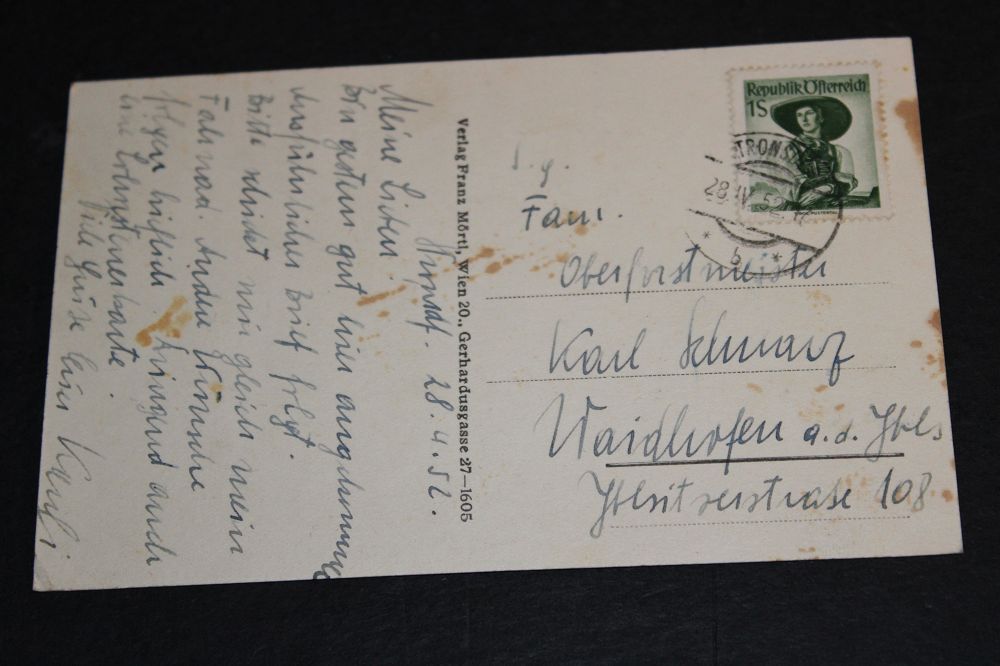 Republik Österreich
1S
STRONSD
28.IV.52
b
Verlag Franz Mörtl, Wien 20., Gerhardusgasse 27–1605
Fam.
Oberforstmeister
Karl Schwarz
Waidhofen a.d. Ybbs
Ybbsitzerstrasse 108
28.4.52.
Meine Lieben!
Bin gestern gut hier angekommen
Ausführlicher Brief folgt.
Bitte schickt mir gleich mein
Fahrrad. Andere Wünsche
folgen brieflich dringend auch
meine
Viele Grüße Euer